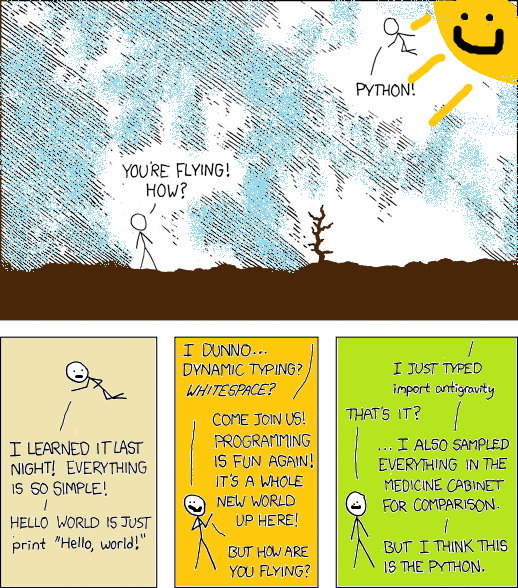 YOU'RE FLYING!
HOW?
PYTHON!
I LEARNED IT LAST
NIGHT! EVERYTHING
IS SO SIMPLE!
HELLO WORLD IS JUST
print "Hello, world!"
I DUNNO...
DYNAMIC TYPING?
WHITESPACE?
COME JOIN US!
PROGRAMMING
IS FUN AGAIN!
IT'S A WHOLE
NEW WORLD
UP HERE!
BUT HOW ARE
YOU FLYING?
I JUST TYPED
import antigravity
THAT'S IT?
... I ALSO SAMPLED
EVERYTHING IN THE
MEDICINE CABINET
FOR COMPARISON.
BUT I THINK THIS
IS THE PYTHON.